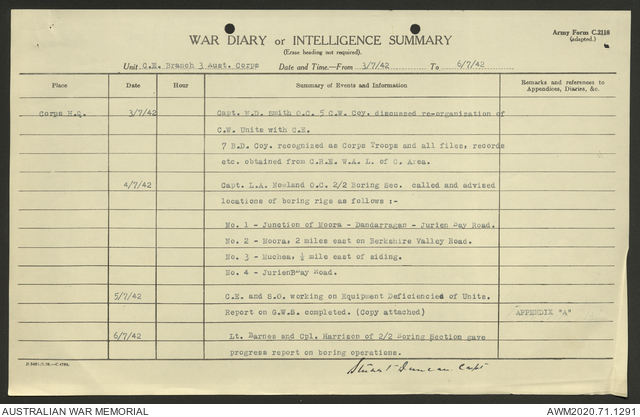 Army Form C.2118
(adapted.)
WAR DIARY or INTELLIGENCE SUMMARY
(Erase heading not required).
Unit C.E. Branch 3 Aust. Corps Date and Time.—From 3/7/42 To 6/7/42
Place Date Hour Summary of Events and Information Remarks and references to Appendices, Diaries, &c.
Corps H.Q. 3/7/42 Capt. W.D. Smith O.C. 5 C.W. Coy. discussed re-organization of
C.W. Units with C.E.
7 B.D. Coy. recognized as Corps Troops and all files, records
etc. obtained from C.R.E. W.A. L. of C. Area.
4/7/42 Capt. L.A. Howland O.C. 2/2 Boring Sec. called and advised
locations of boring rigs as follows :-
No. 1 - Junction of Moora - Dandarragan - Jurien Bay Road.
No. 2 - Moora, 2 miles east on Berkshire Valley Road.
No. 3 - Muchea, ½ mile east of siding.
No. 4 - JurienBay Road.
5/7/42 C.E. and S.O. working on Equipment Deficiencies of Units.
Report on G.W.S. completed. (Copy attached) APPENDIX "A"
6/7/42 Lt. Barnes and Cpl. Harrison of 2/2 Boring Section gave
progress report on boring operations.
Stuart Duncan Capt
AUSTRALIAN WAR MEMORIAL
AWM2020.71.1291